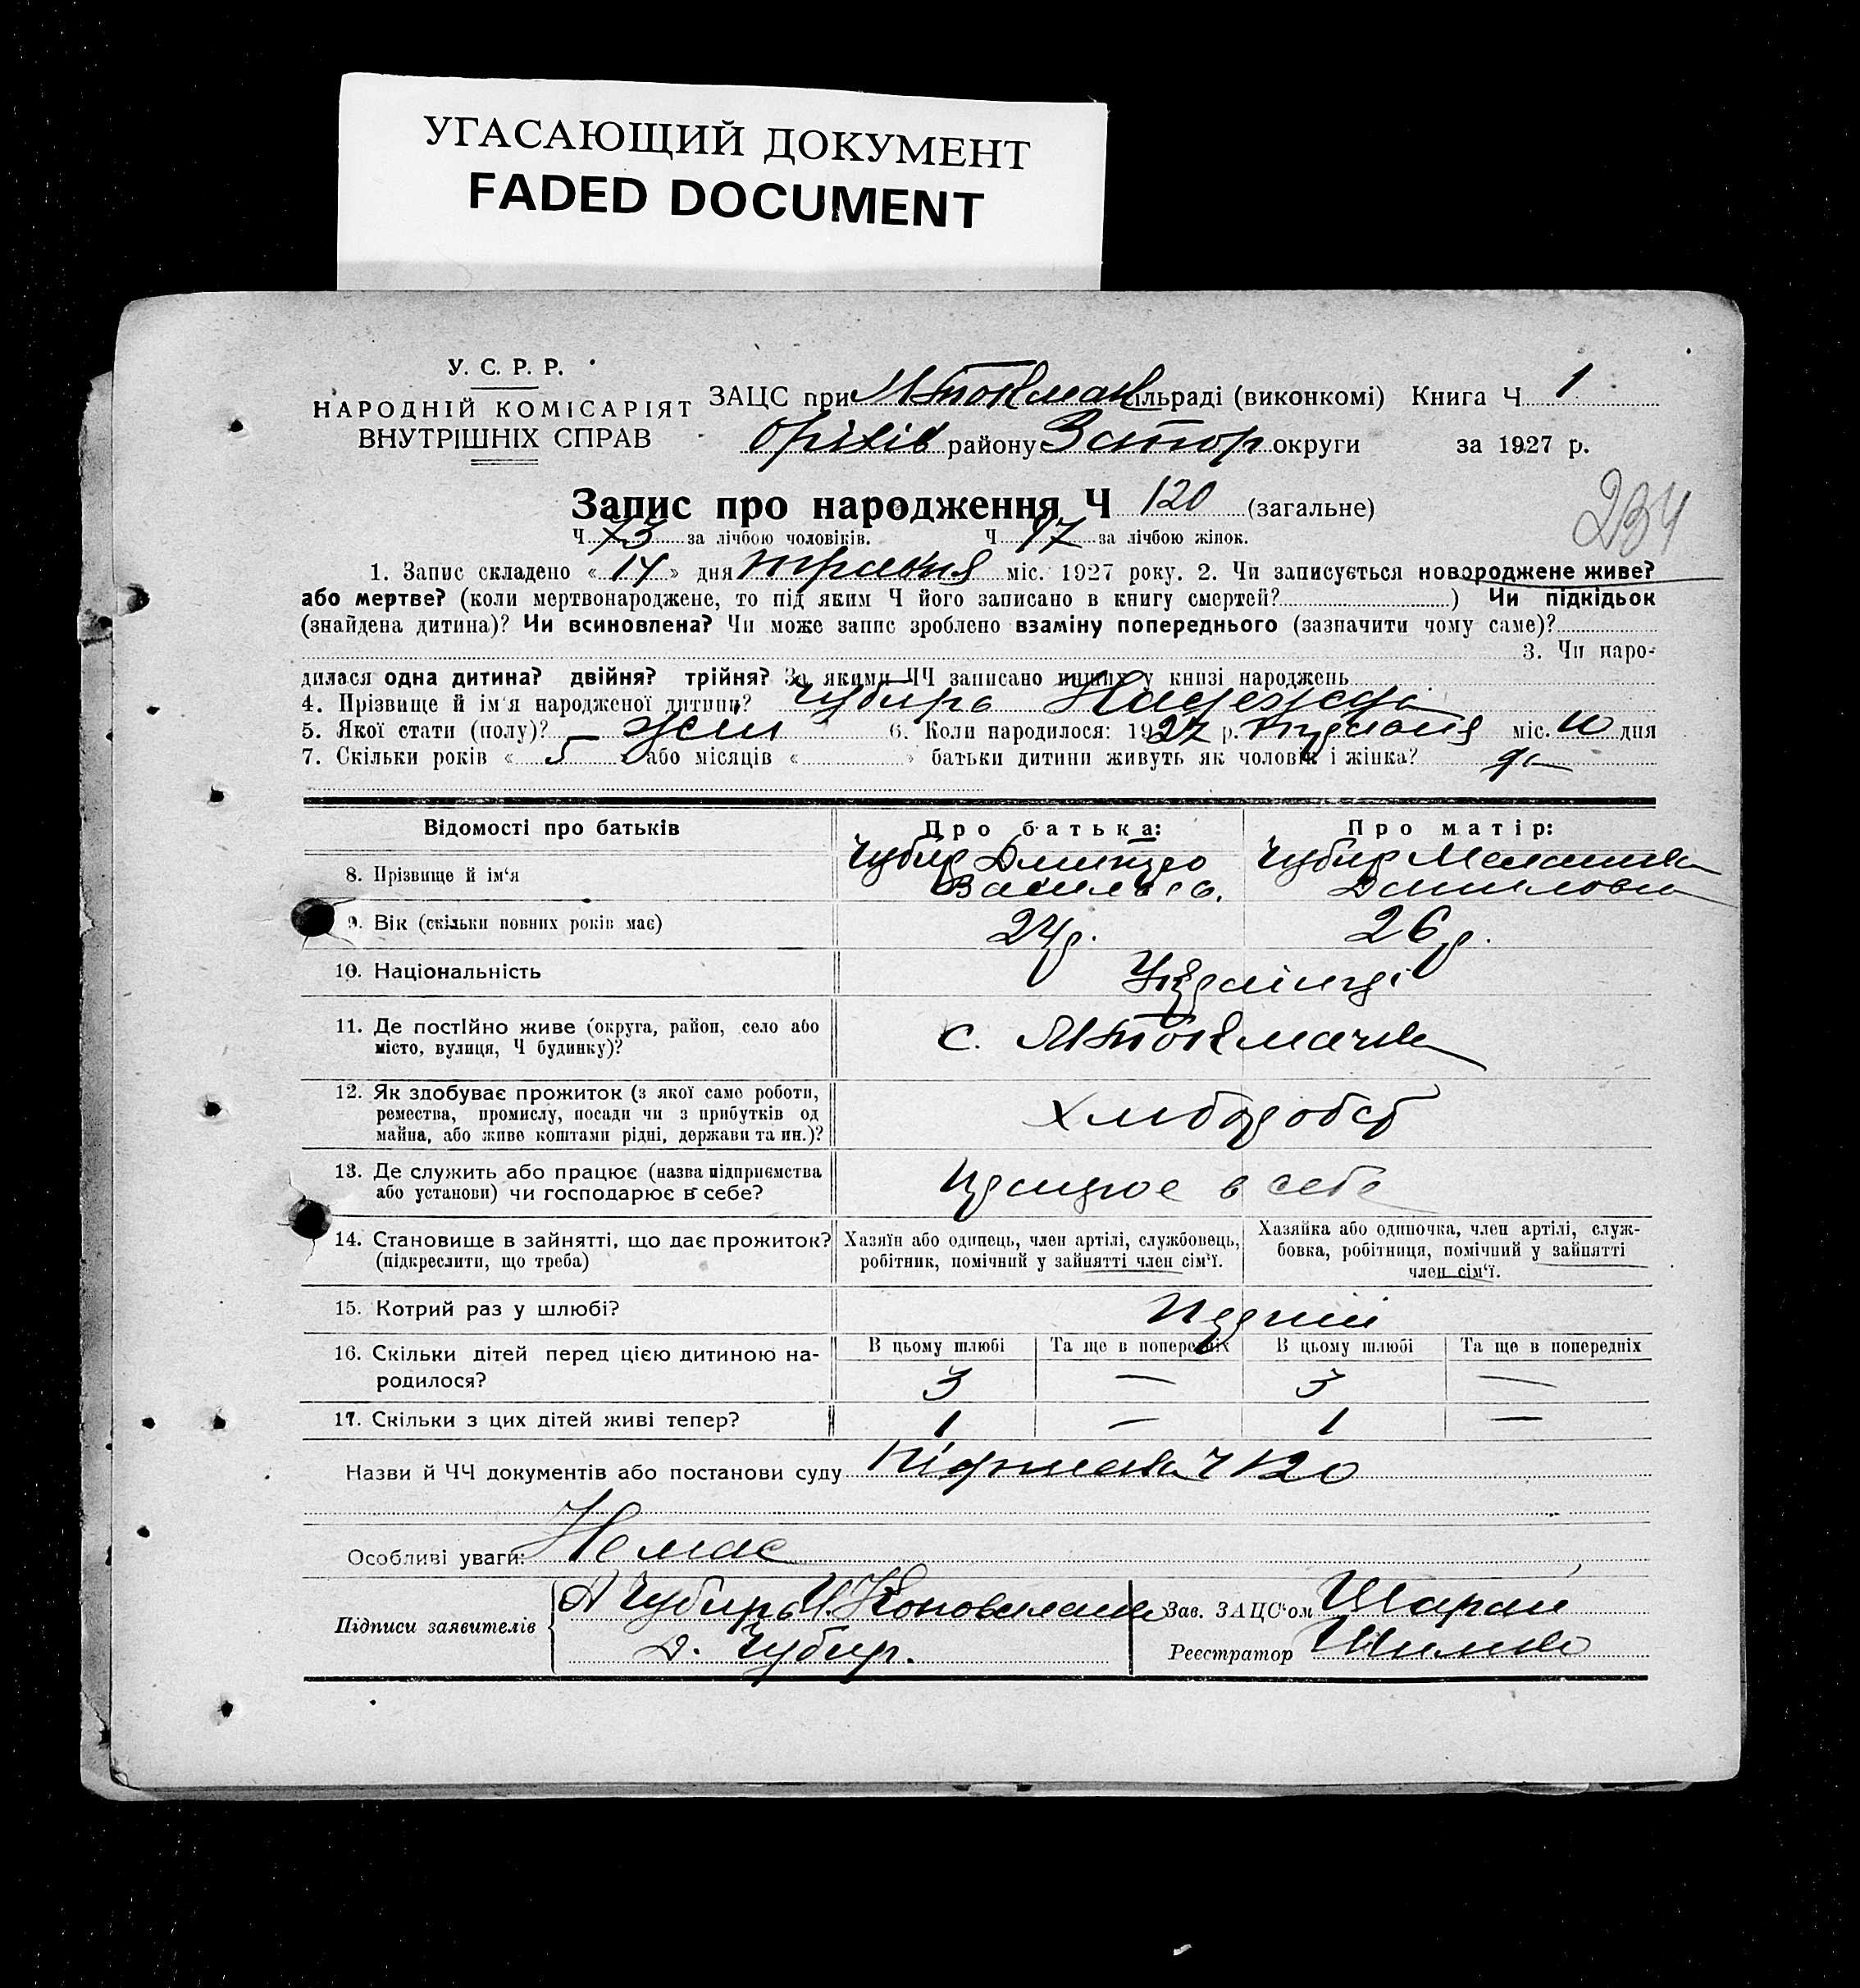 УГАСАЮЩИЙ ДОКУМЕНТ
FADED DOCUMENT
У. С. Р. Р.
НАРОДНІЙ КОМІСАРІЯТ
ВНУТРІШНІХ СПРАВ
ЗАЦС при М Токмач ільраді (виконкомі) Книга Ч 1
Оріхів району Запор округи за 1927 р.
234
Запис про народження Ч 120 (загальне)
Ч 73 за лічбою чоловіків. Ч 47 за лічбою жінок.
1. Запис складено «14» дня травня міс. 1927 року. 2. Чи записується новороджене живе?
або мертве? (коли мертвонароджене, то під яким Ч його записано в книгу смертей?) Чи підкідьок
(знайдена дитина)? Чи всиновлена? Чи може запис зроблено взаміну попереднього (зазначити чому саме)?
3. Чи наро-
дилася одна дитина? двійня? трійня? За якими ЧЧ записано инших у книзі народжень
4. Прізвище й ім'я народженої дитини? Чубирь Надежда
5. Якої стати (полу)? — жін 6. Коли народилося: 1927 р. травня міс. 10 дня
7. Скільки років « 5 або місяців « » батьки дитини живуть як чоловік і жінка? да
Відомості про батьків
Про батька: Про матір:
8. Прізвище й ім'я Чубир Дмитро Васильев. Чубир Меланка Даниловна
9. Вік (скільки повних років має) 24 р. 26 р.
10. Національність Українці
11. Де постійно живе (округа, район, село або с. М Токмачка
місто, вулиця, Ч будинку)?
12. Як здобуває прожиток (з якої само роботи,
ремества, промислу, посади чи з прибутків од Хлібороб
майна, або живе коштами рідні, держави та ин.)?
13. Де служить або працює (назва підприємства Працює в себе
або установи) чи господарює в себе?
14. Становище в зайнятті, що дає прожиток? Хазяїн або одинець, член артілі, службовець, Хазяйка або одиночка, член артілі, служ-
(підкреслити, що треба) робітник, помічний у зайнятті член сім'ї. бовка, робітниця, помічний у зайнятті
член сім'ї.
15. Котрий раз у шлюбі? Перший
16. Скільки дітей перед цією дитиною на- В цьому шлюбі Та ще в попередніх В цьому шлюбі Та ще в попередніх
родилося? 3 — 3 —
17. Скільки з цих дітей живі тепер? 1 — 1 —
Назви й ЧЧ документів або постанови суду Підписка Ч 120
Особливі уваги: Немає
Підписи заявителів
А Чубирь И. Коновалова
Д. Чубир.
Зав. ЗАЦС'ом Шарай
Реєстратор